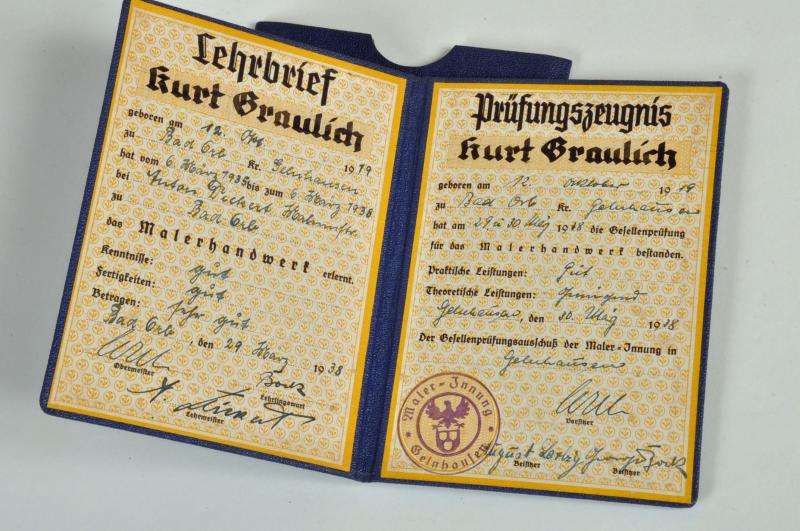 Lehrbrief
Kurt Graulich
geboren am 12. Okt. 1919
zu Bad Orb Kr. Gelnhausen
hat vom 6. März 1935 bis zum 6. März 1938
bei Anton Malermstr.
zu Bad Orb
das Malerhandwerk erlernt.
Kenntnisse: gut
Fertigkeiten: gut
Betragen: sehr gut
Bad Orb, den 29. März 1938
Obermeister
Bock
Lehrlingswart
Lehrmeister
Prüfungszeugnis
Kurt Graulich
geboren am 12. Oktober 1919
zu Bad Orb Kr. Gelnhausen
hat am 29 u 30 März 1938 die Gesellenprüfung
für das Malerhandwerk bestanden.
Praktische Leistungen: Gut
Theoretische Leistungen:
Gelnhausen, den 30. März 1938
Der Gesellenprüfungsausschuß der Maler-Innung in
Gelnhausen
Maler-Innung
Gelnhausen
Vorsitzer
August Georg Bock
Beisitzer Beisitzer